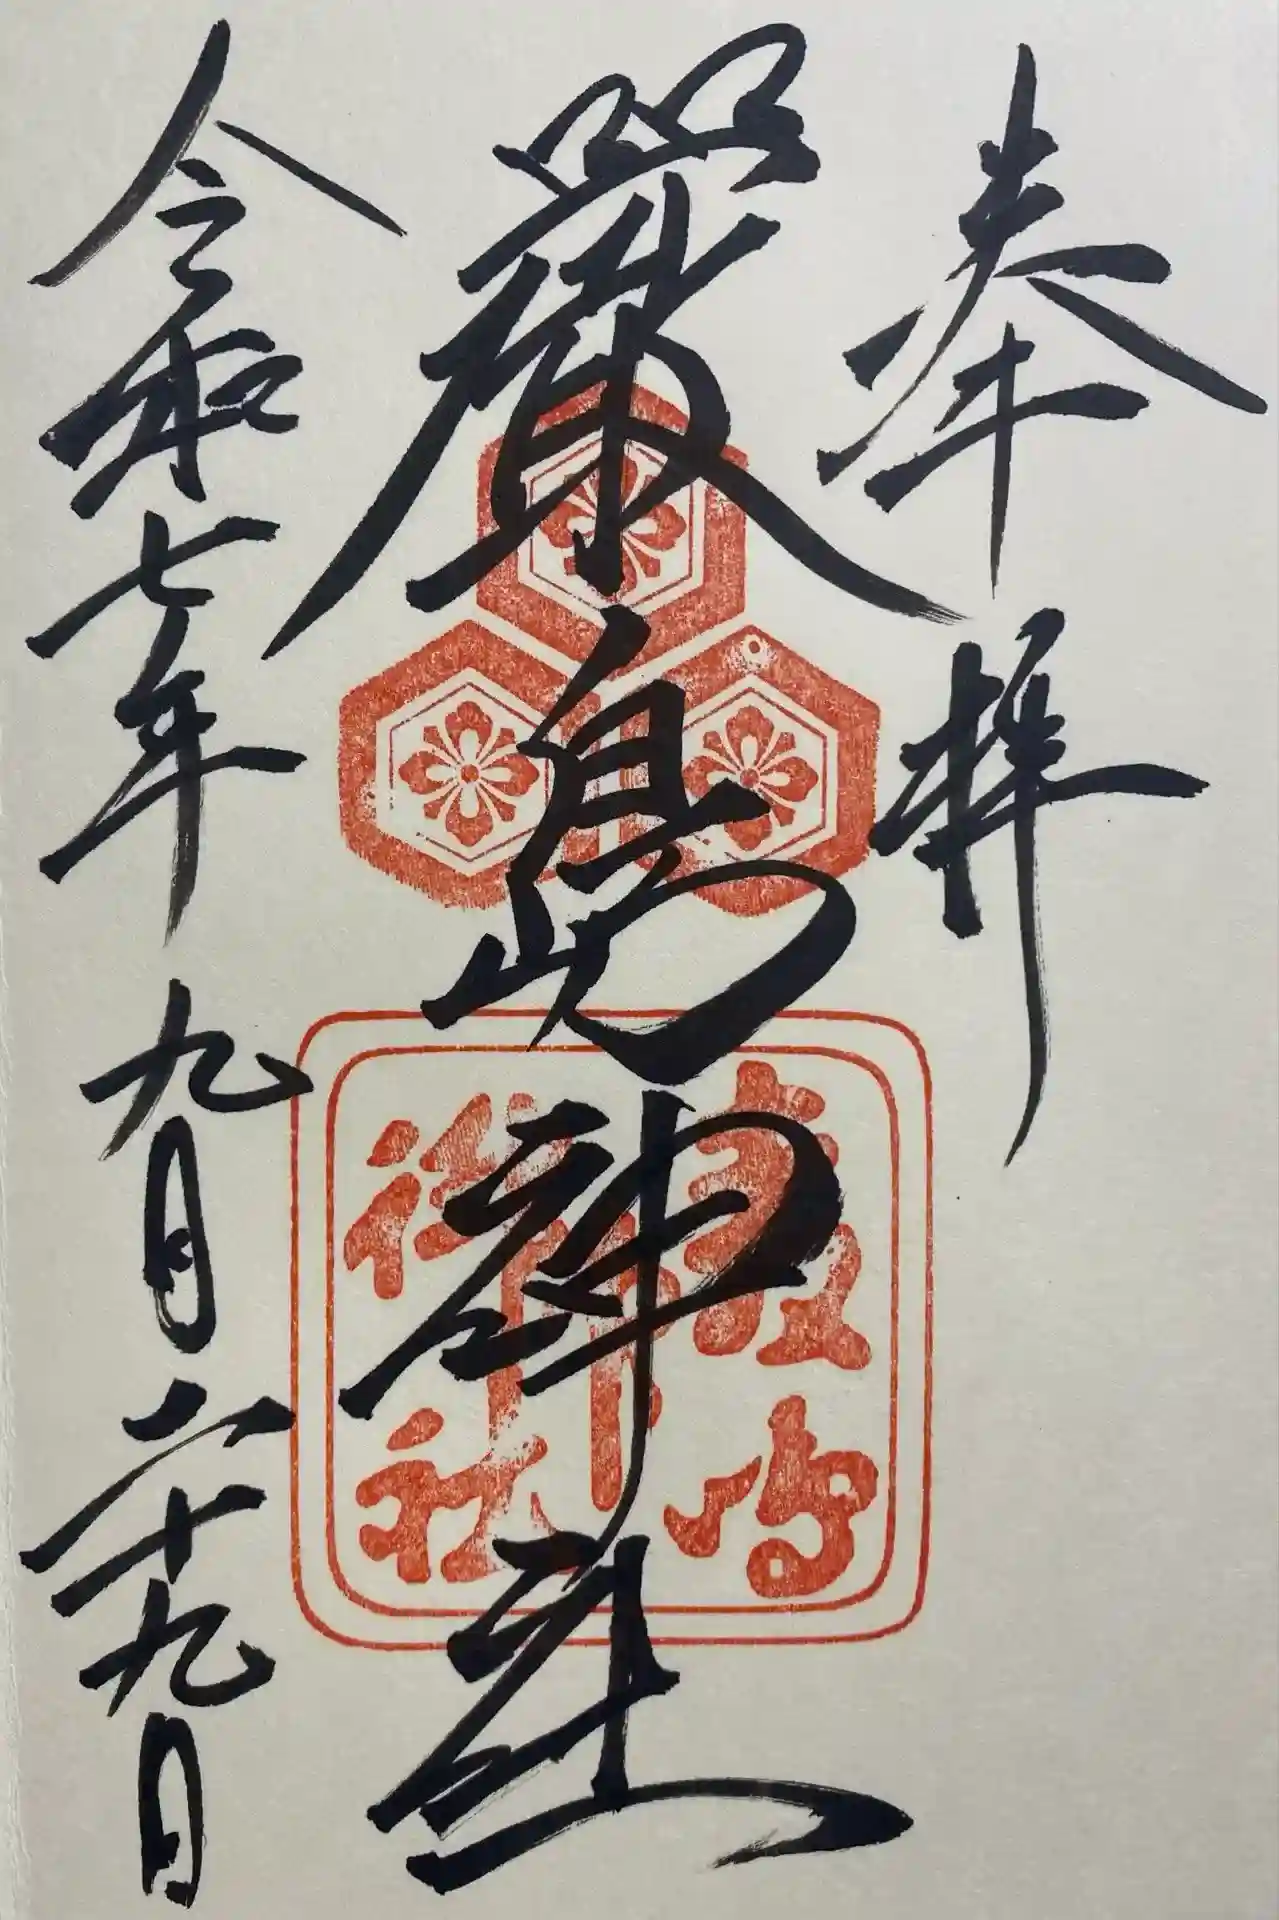 奉拝
嚴島神社
嚴島
神社
令和七年九月二十九日